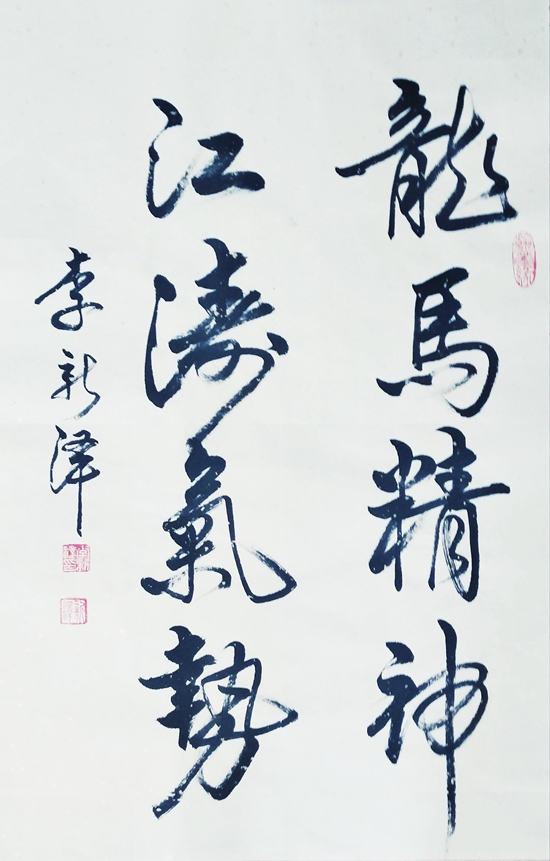 龍馬精神
江濤氣勢
李新泽